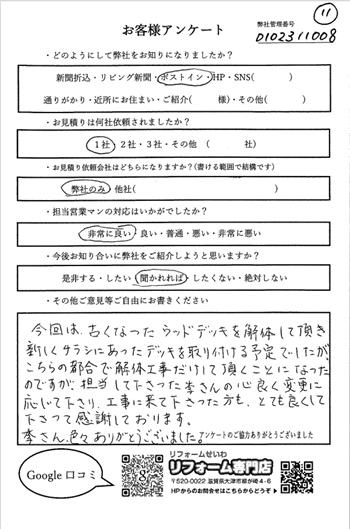 11
お客様アンケート
弊社管理番号
D102311008
・どのようにして弊社をお知りになりましたか？
新聞折込・リビング新聞・ポストイン・HP・SNS(　　　)
通りがかり・近所にお住まい・ご紹介(　　　様)・その他(　　　)
・お見積りは何社依頼されましたか？
1社・2社・3社・その他（　　　社)
・お見積り依頼会社はどちらになりますか？(書ける範囲で結構です)
弊社のみ・他社(　　　)
・担当営業マンの対応はいかがでしたか？
非常に良い・良い・普通・悪い・非常に悪い
・今後お知り合いに弊社をご紹介しようと思いますか？
是非する・したい・聞かれれば・したくない・絶対しない
・その他ご意見等ご自由にお書きください
今回は、古くなったウッドデッキを解体して頂き
新しくチラシにあったデッキを取り付ける予定でしたが、
こちらの都合で解体工事だけして頂くことになった
のですが、担当して下さった李さんの心良く変更に
応じて下さり、工事に来て下さった方も、とても良くして
下さって感謝しております。
李さん、色々ありがとうございました。
アンケートのご協力ありがとうございました
Google口コミ
リフォームせいわ
リフォーム専門店
〒520-0022 滋賀県大津市柳が崎4-6
HPからのお問合せはこちらからどうぞ